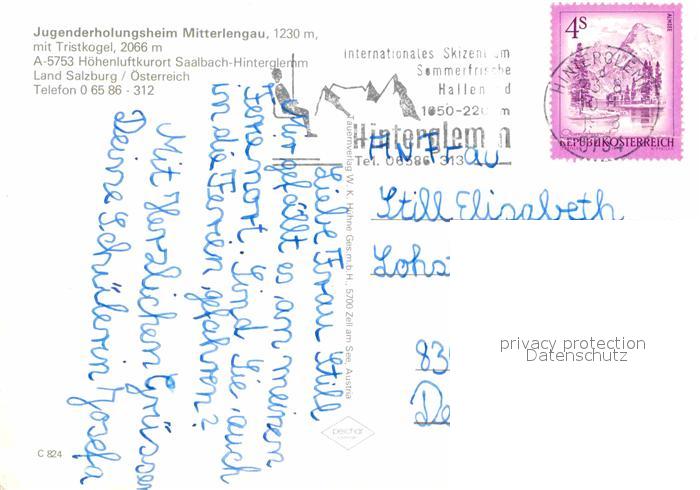 Jugenderholungsheim Mitterlengau, 1230 m,
mit Tristkogel, 2066 m
A-5753 Höhenluftkurort Saalbach-Hinterglemm
Land Salzburg / Österreich
Telefon 0 65 86 - 312
Internationales Skizentrum
Sommerfrische
Hallenbad
1050-2200 m
Hinterglemm
Tel. 06586 313
4S
ALMSEE
REPUBLIK ÖSTERREICH
HINTERGLEMM
An Frau
Still Elisabeth
Lohs
83
De
privacy protection
Datenschutz
Liebe Frau Still
Mir gefällt es an meinen
Ferienort. Sind Sie auch
in die Ferien gefahren?
Mit Herzlichen Grüssen
Deine Schülerin Josefa
Tauernverlag W. K. Höhne Ges.m.b.H., 5700 Zell am See, Austria
C 824